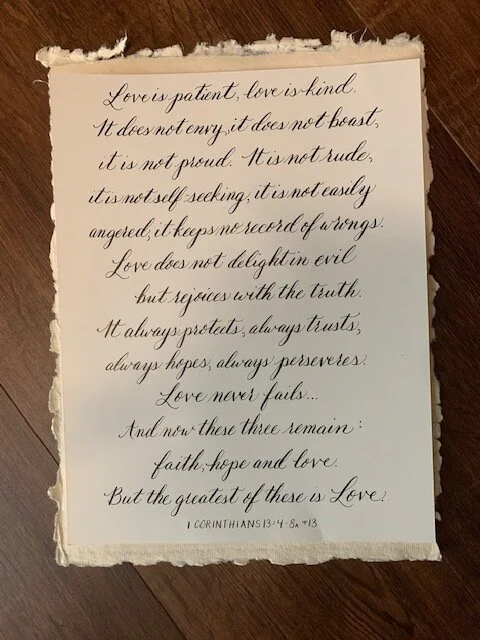 Love is patient, love is kind.
It does not envy, it does not boast,
it is not proud. It is not rude,
it is not self-seeking, it is not easily
angered, it keeps no record of wrongs.
Love does not delight in evil
but rejoices with the truth.
It always protects, always trusts,
always hopes, always perseveres.
Love never fails...
And now these three remain:
faith, hope and love.
But the greatest of these is Love.
1 CORINTHIANS 13:4-8a + 13